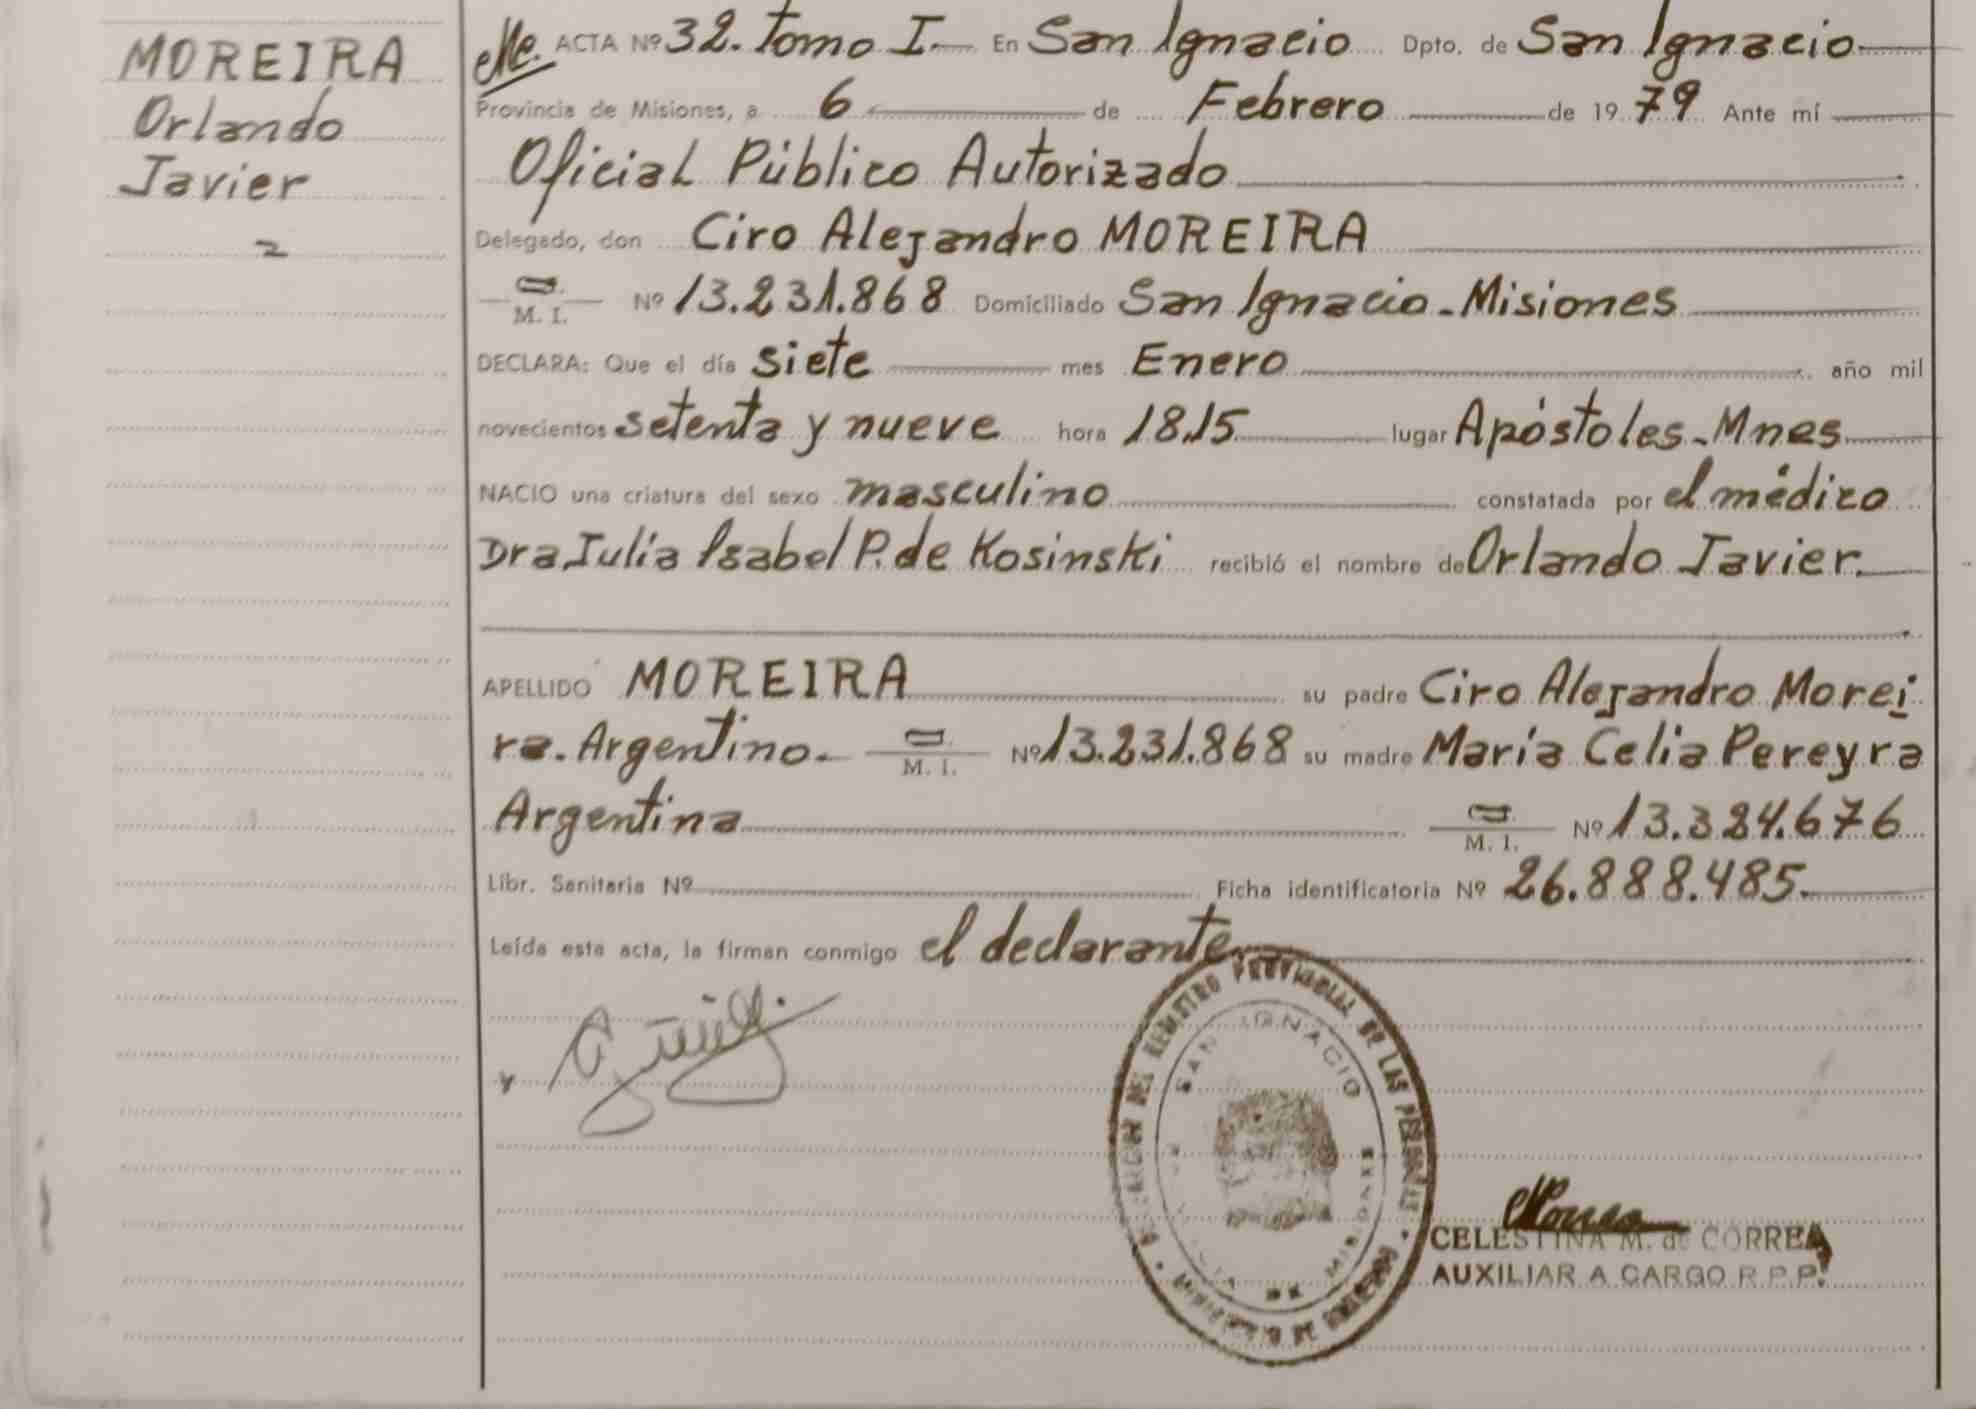 MOREIRA
Orlando
Javier
2
ACTA Nº 32. Tomo I. En San Ignacio Dpto. de San Ignacio
Provincia de Misiones, a 6 de Febrero de 1979 Ante mí
Oficial Público Autorizado
Delegado, don Ciro Alejandro MOREIRA
M. I. Nº 13.231.868 Domiciliado San Ignacio-Misiones
DECLARA: Que el día siete mes Enero año mil
novecientos setenta y nueve hora 18.15 lugar Apóstoles-Mnes
NACIO una criatura del sexo masculino constatada por el médico
Dra Julia Isabel P. de Kosinski recibió el nombre de Orlando Javier.
APELLIDO MOREIRA su padre Ciro Alejandro Morei
ra. Argentino. M. I. Nº 13.231.868 su madre María Celia Pereyra
Argentina M. I. Nº 13.324.676
Libr. Sanitaria Nº Ficha identificatoria Nº 26.888.485.
Leída esta acta, la firman conmigo el declarante
DEL REGISTRO PROVINCIAL DE LAS PERSONAS
SAN IGNACIO
MISIONES
MINISTERIO DE GOBIERNO
CELESTINA M. de CORREA
AUXILIAR A CARGO R.P.P.